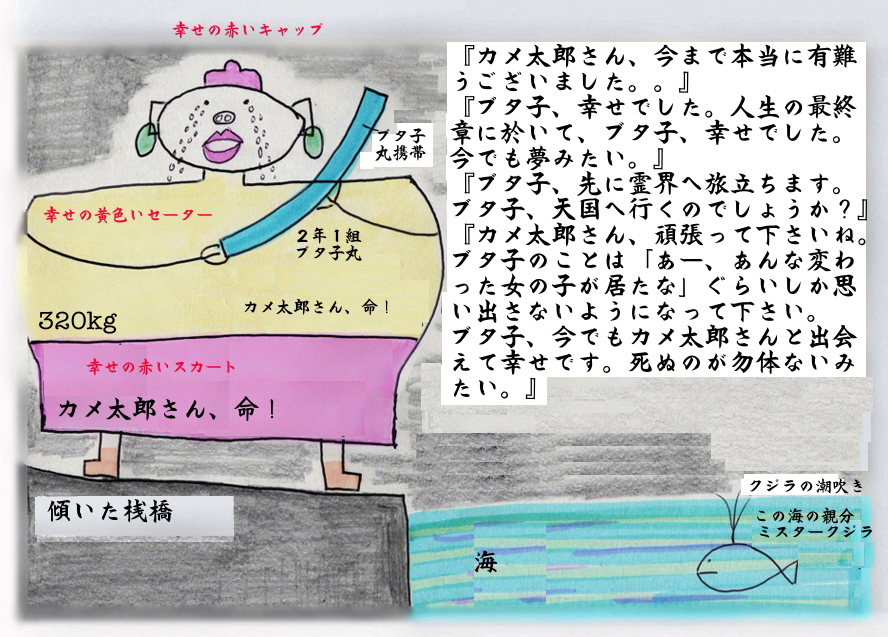 幸せの赤いキャップ
『カメ太郎さん、今まで本当に有難
うございました。。』
『ブタ子、幸せでした。人生の最終
章に於いて、ブタ子、幸せでした。
今でも夢みたい。』
『ブタ子、先に霊界へ旅立ちます。
ブタ子、天国へ行くのでしょうか？』
『カメ太郎さん、頑張って下さいね。
ブタ子のことは「あー、あんな変わ
った女の子が居たな」ぐらいしか思
い出さないようになって下さい。
ブタ子、今でもカメ太郎さんと出会
えて幸せです。死ぬのが勿体ないみ
たい。』
ブタ子
丸携帯
幸せの黄色いセーター
２年１組
ブタ子丸
カメ太郎さん、命！
320kg
幸せの赤いスカート
カメ太郎さん、命！
傾いた桟橋
クジラの潮吹き
この海の親分
ミスタークジラ
海